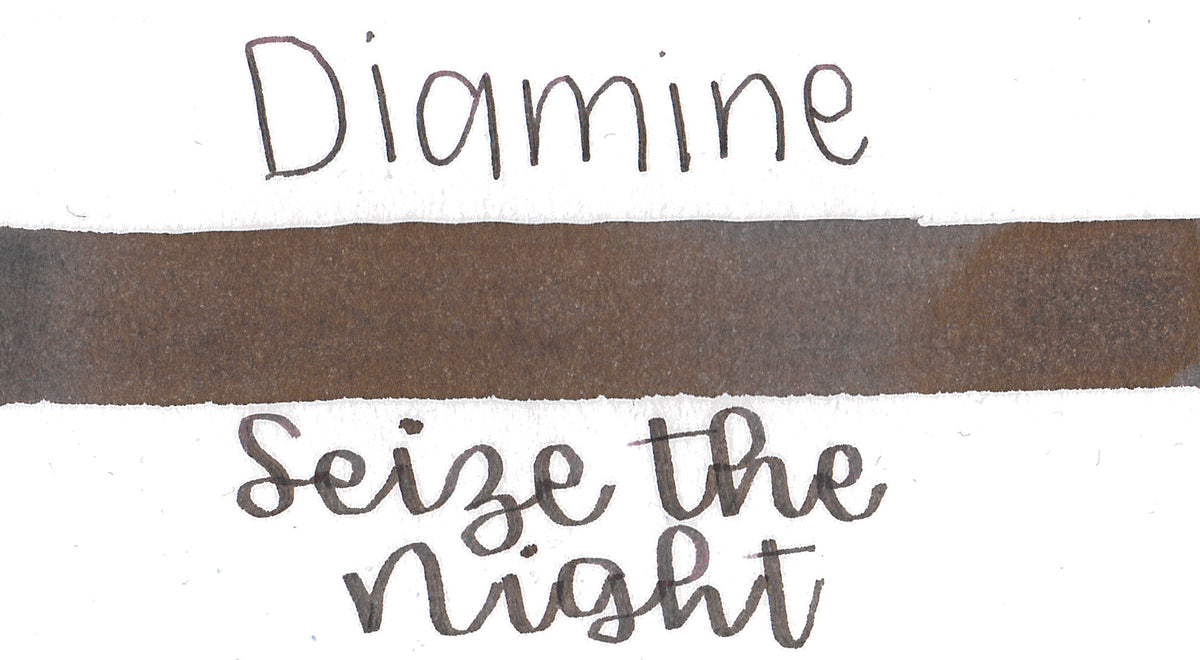 Diamine
Seize the
Night